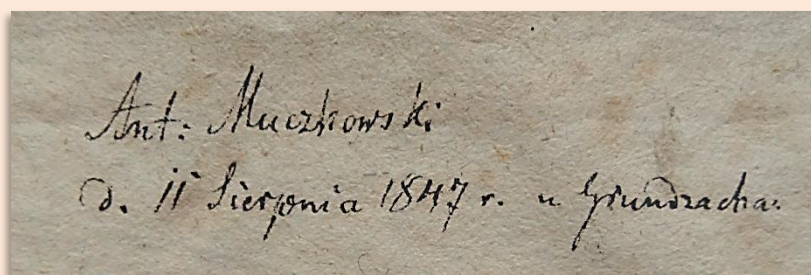 Ant: Muczkowski
d. 11 Sierpnia 1847 r. u Grundzacha.